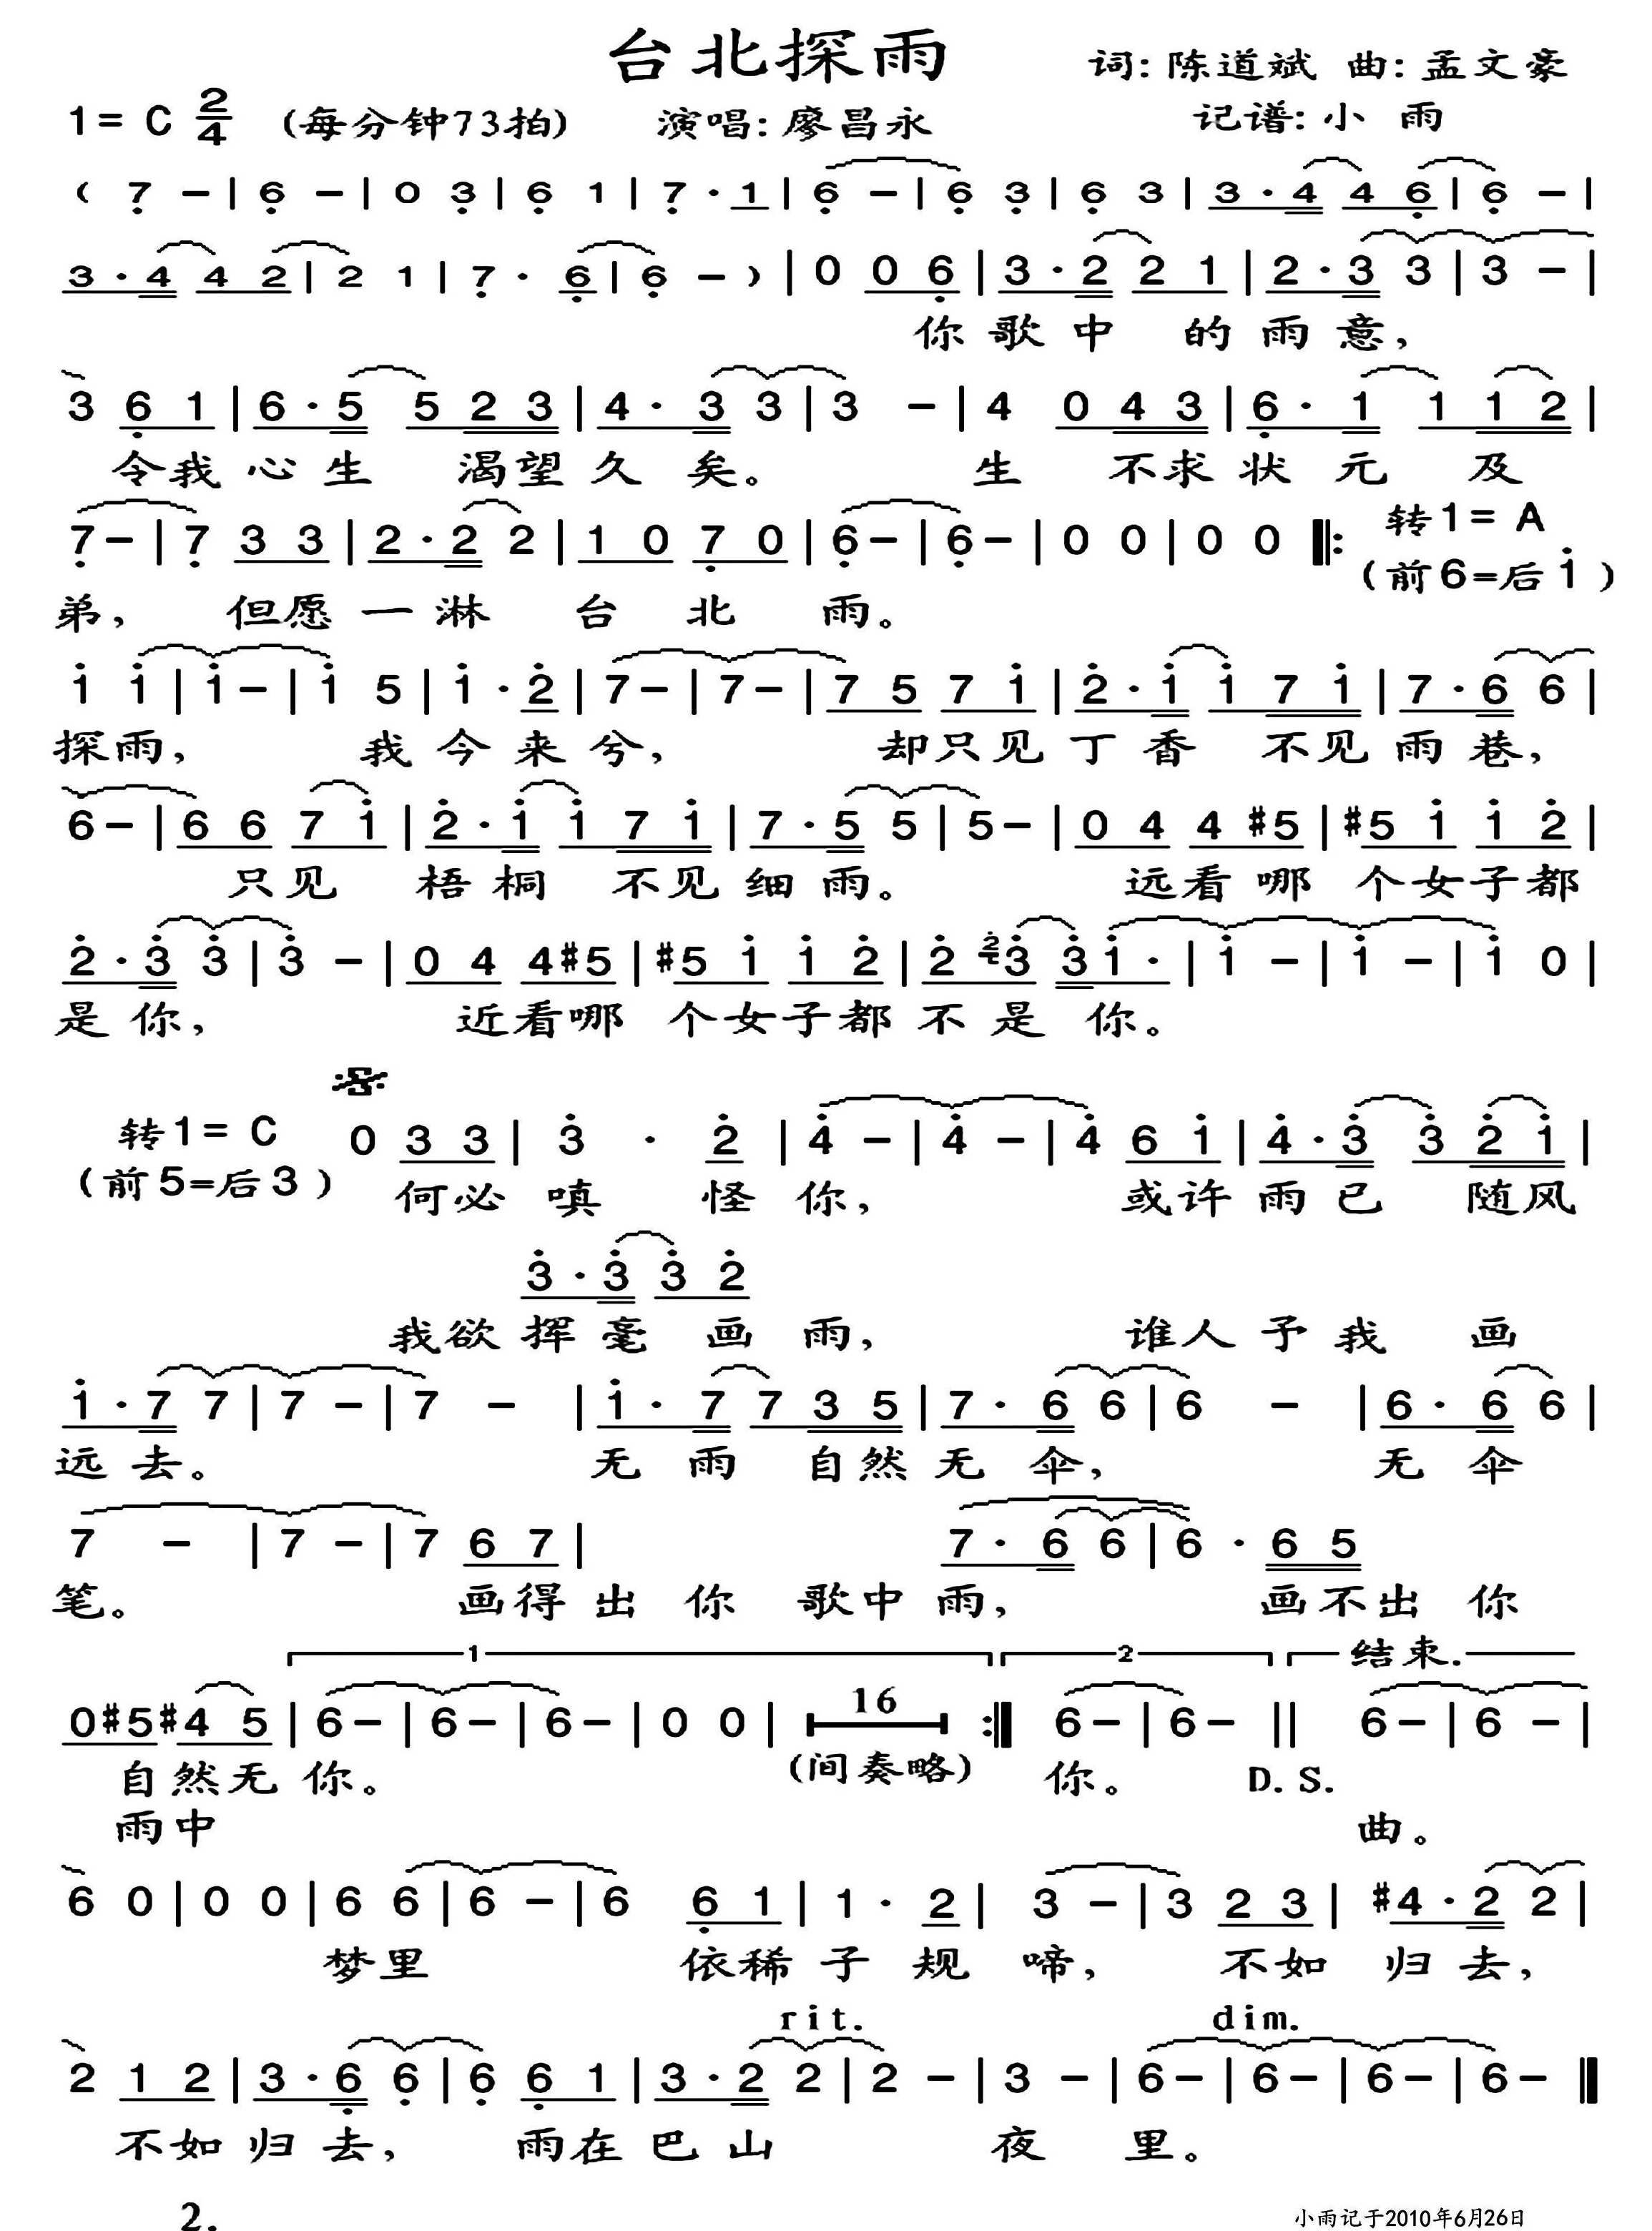 台北探雨
词: 陈道斌 曲: 孟文豪
1= C 2/4 (每分钟73拍) 演唱: 廖昌永 记谱: 小 雨
( 7 – | 6 – | 0 3 | 6 1 | 7 · 1 | 6 – | 6 3 | 6 3 | 3 · 4 4 6 | 6 – |
3 · 4 4 2 | 2 1 | 7 · 6 | 6 – ) | 0 0 6 | 3 · 2 2 1 | 2 · 3 3 | 3 – |
你 歌 中 的 雨 意,
3 6 1 | 6 · 5 5 2 3 | 4 · 3 3 | 3 – | 4 0 4 3 | 6 · 1 1 1 2 |
令我 心 生 渴望 久 矣。 生 不求 状 元 及
7 – | 7 3 3 | 2 · 2 2 | 1 0 7 0 | 6 – | 6 – | 0 0 | 0 0 ‖: 转1= A (前6=后i)
弟, 但愿 一 淋 台 北 雨。
i i | i – | i 5 | i · 2 | 7 – | 7 – | 7 5 7 i | 2 · i i 7 i | 7 · 6 6 |
探雨, 我 今 来 兮, 却只见 丁 香 不见 雨 巷,
6 – | 6 6 7 i | 2 · i i 7 i | 7 · 5 5 | 5 – | 0 4 4 #5 | #5 i i 2 |
只见 梧 桐 不见 细 雨。 远看 哪 个女子都
2 · 3 3 | 3 – | 0 4 4 #5 | #5 i i 2 | 2 2 3 3 i · | i – | i – | i 0 |
是 你, 近看哪 个女子都 不 是 你。
转1= C (前5=后3) 0 3 3 | 3 · 2 | 4 – | 4 – | 4 6 i | 4 · 3 3 2 i |
何必 嗔 怪 你, 或许 雨 已 随风
3 · 3 3 2
我欲 挥 毫 画 雨, 谁人 予 我 画
i · 7 7 | 7 – | 7 – | i · 7 7 3 5 | 7 · 6 6 | 6 – | 6 · 6 6 |
远 去。 无 雨 自然 无 伞, 无 伞
7 – | 7 – | 7 6 7 | 7 · 6 6 | 6 · 6 5
笔。 画得 出 你 歌中 雨, 画不出 你
1 2 结束.
0 #5 #4 5 | 6 – | 6 – | 6 – | 0 0 | 16 :‖ 6 – | 6 – ‖ 6 – | 6 – |
自然无 你。 (间奏略) 你。 D.S.
雨中 曲。
6 0 | 0 0 | 6 6 | 6 – | 6 6 1 | 1 · 2 | 3 – | 3 2 3 | #4 · 2 2 |
梦里 依稀 子 规 啼, 不如 归 去,
rit. dim.
2 1 2 | 3 · 6 6 | 6 6 1 | 3 · 2 2 | 2 – | 3 – | 6 – | 6 – | 6 – | 6 – ‖
不如 归 去, 雨在 巴 山 夜 里。
2.
小雨记于2010年6月26日